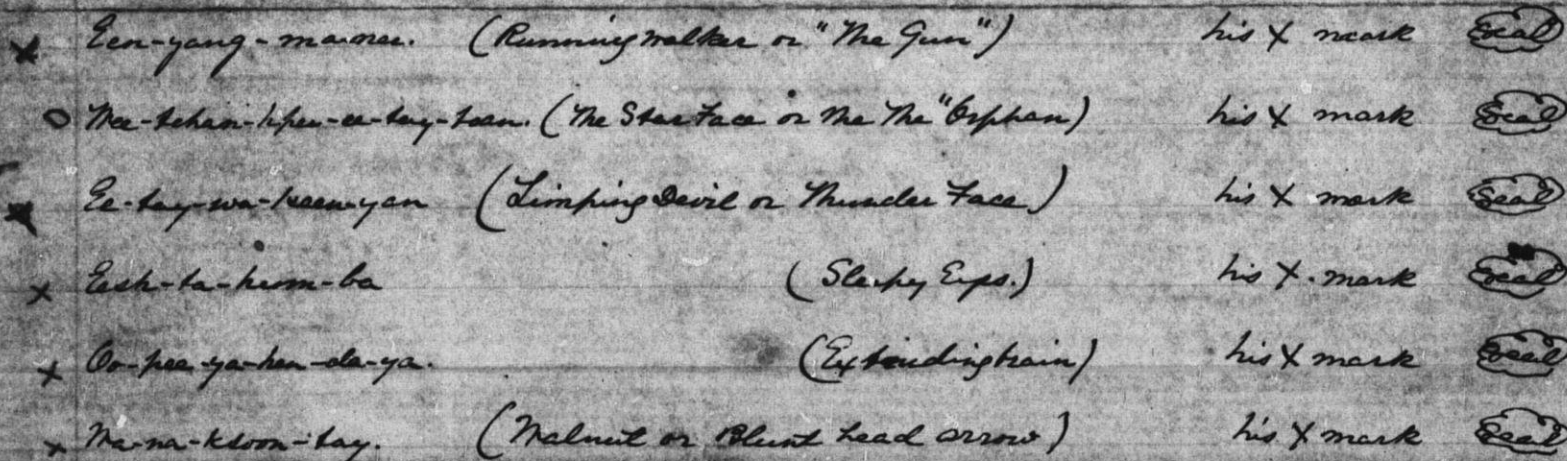 x Een-yang-ma-nee. (Running walker or "The Gun") his X mark Seal
o Wee-tchan-hpee-ee-tay-toan. (The Star Face or The The "Orphan) his X mark Seal
x Ee-tay-wa-keen-yan (Limping Devil or Thunder Face) his X mark Seal
x Eesh-ta-hum-ba (Sleepy Eyes.) his X mark Seal
x Oo-pee-ya-hen-de-ya. (Extending train) his X mark Seal
x Wa-na-ksoon-tay. (Walnut or Blunt head arrow) his X mark Seal